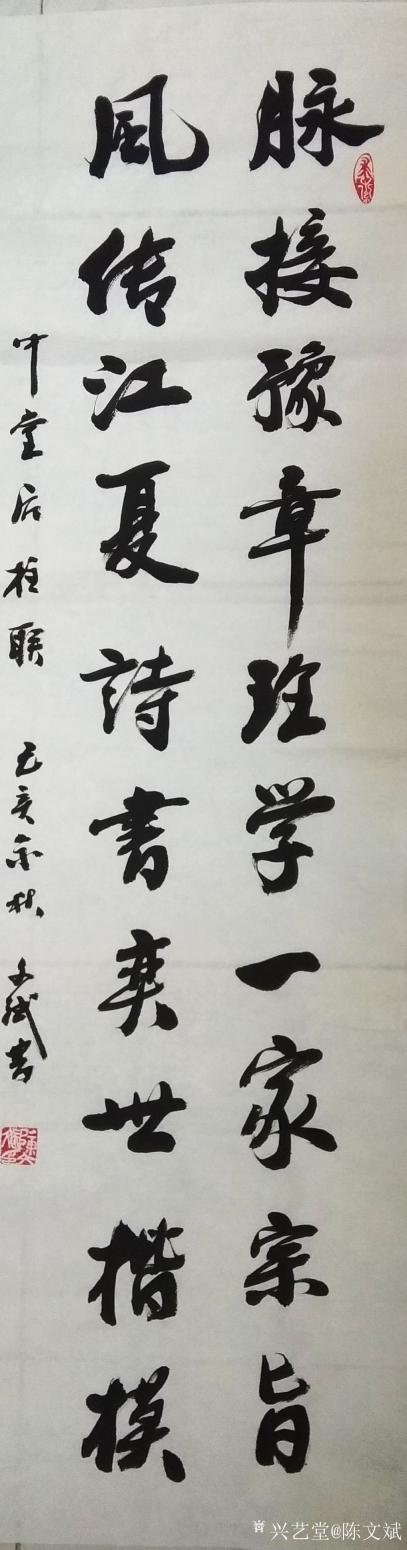 脉接豫章理学一家宗旨
风传江夏詩書奕世楷模
中堂后柱联 己亥金秋 文斌书
兴艺堂@陈文斌